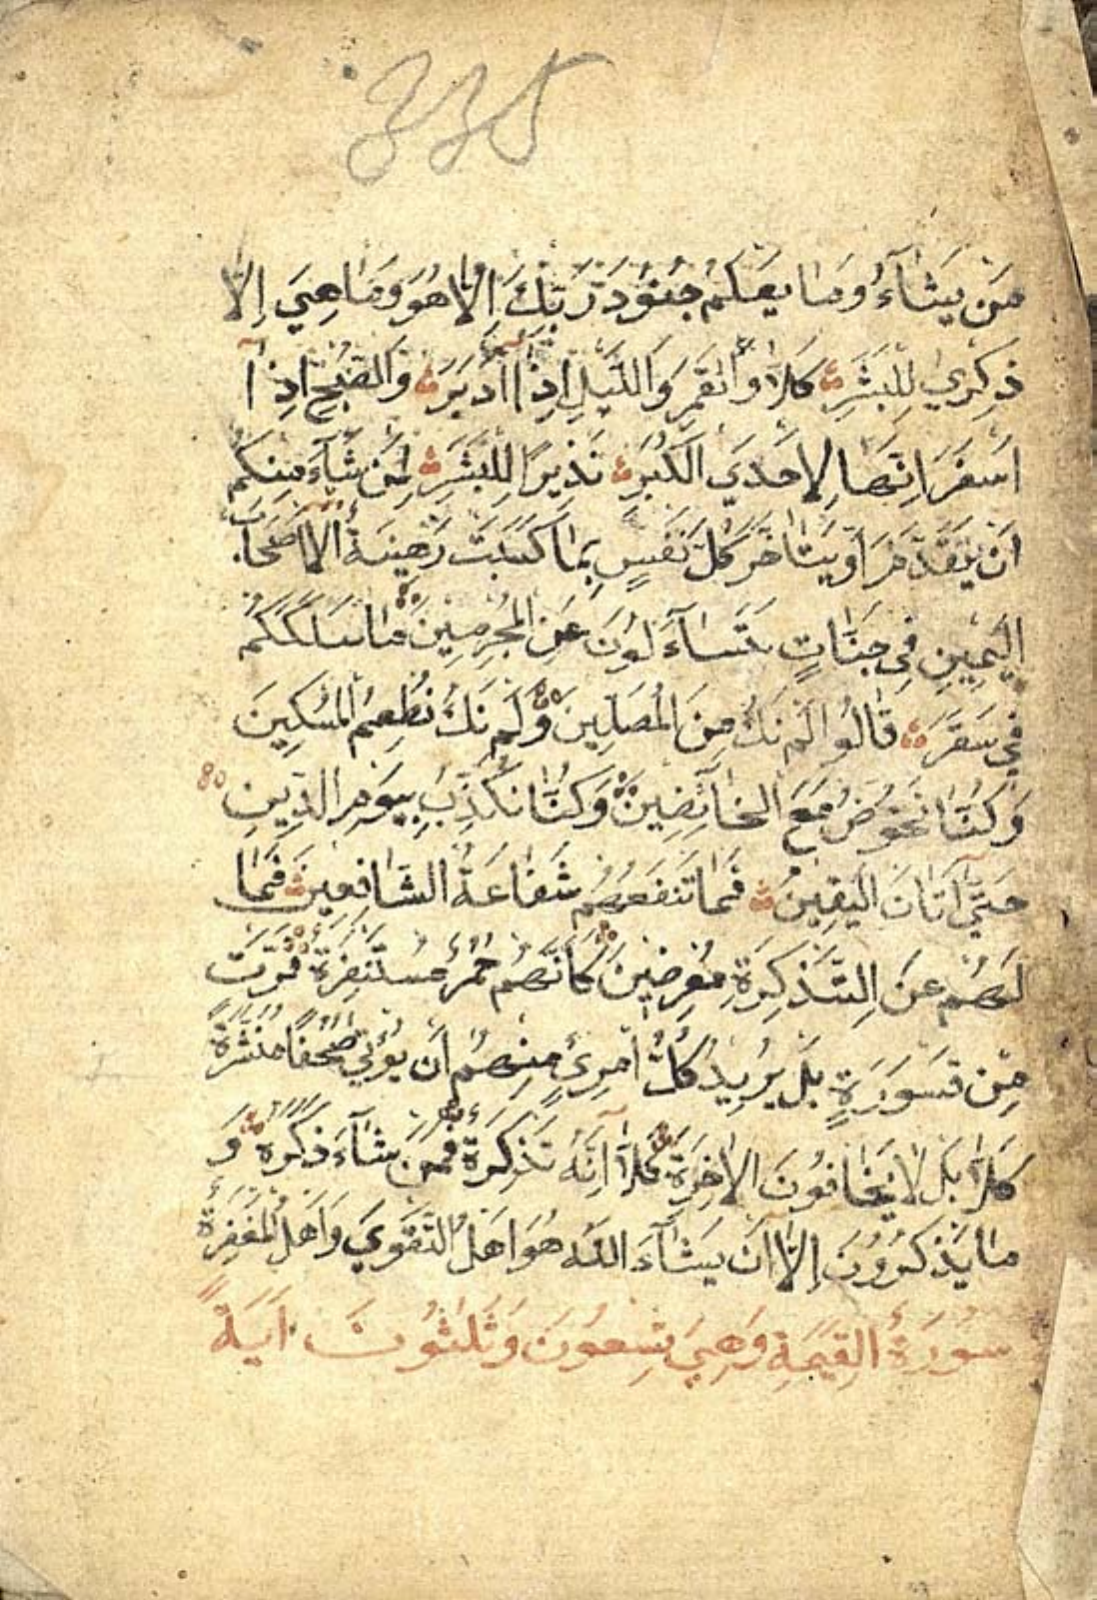 مَن يَشَآءُ وَمَا يَعْلَمُ جُنُودَ رَبِّكَ اِلَّا هُوَ وَمَا هِيَ اِلَّا
ذِكْرٰي لِلْبَشَرِ كَلَّا وَالْقَمَرِ وَاللَّيْلِ اِذْ اَدْبَرَ وَالصُّبْحِ اِذَآ
اَسْفَرَ اِنَّهَا لَاِحْدَي الْكُبَرِ نَذِيرًا لِلْبَشَرِ لِمَن شَآءَ مِنكُمْ
اَن يَتَقَدَّمَ اَوْ يَتَاَخَّرَ كُلُّ نَفْسٍ بِمَا كَسَبَتْ رَهِينَةٌ اِلَّا اَصْحَابَ
الْيَمِينِ فِي جَنَّاتٍ يَتَسَآءَلُونَ عَنِ الْمُجْرِمِينَ مَا سَلَكَكُمْ
فِي سَقَرَ قَالُوا لَمْ نَكُ مِنَ الْمُصَلِّينَ وَلَمْ نَكُ نُطْعِمُ الْمِسْكِينَ
وَكُنَّا نَخُوضُ مَعَ الْخَآئِضِينَ وَكُنَّا نُكَذِّبُ بِيَوْمِ الدِّينِ
حَتَّيٓ اَتَانَ الْيَقِينُ فَمَا تَنفَعُهُمْ شَفَاعَةُ الشَّافِعِينَ فَمَا
لَهُمْ عَنِ التَّذْكِرَةِ مُعْرِضِينَ كَاَنَّهُمْ حُمُرٌ مُسْتَنْفِرَةٌ فَرَّتْ
مِنْ قَسْوَرَةٍ بَلْ يُرِيدُ كُلُّ امْرِئٍ مِنْهُمْ اَن يُؤْتٰي صُحُفًا مُنَشَّرَةً
كَلَّا بَل لَا يَخَافُونَ الْاٰخِرَةَ كَلَّآ اِنَّهُ تَذْكِرَةٌ فَمَن شَآءَ ذَكَرَهُ وَ
مَا يَذْكُرُونَ اِلَّا اَن يَشَآءَ اللَّهُ هُوَ اَهْلُ التَّقْوَي وَاَهْلُ الْمَغْفِرَةِ
سُورَةُ الْقِيٰمَةِ وَهِيَ تِسْعُونَ وَثَلٰثُونَ اٰيَةً